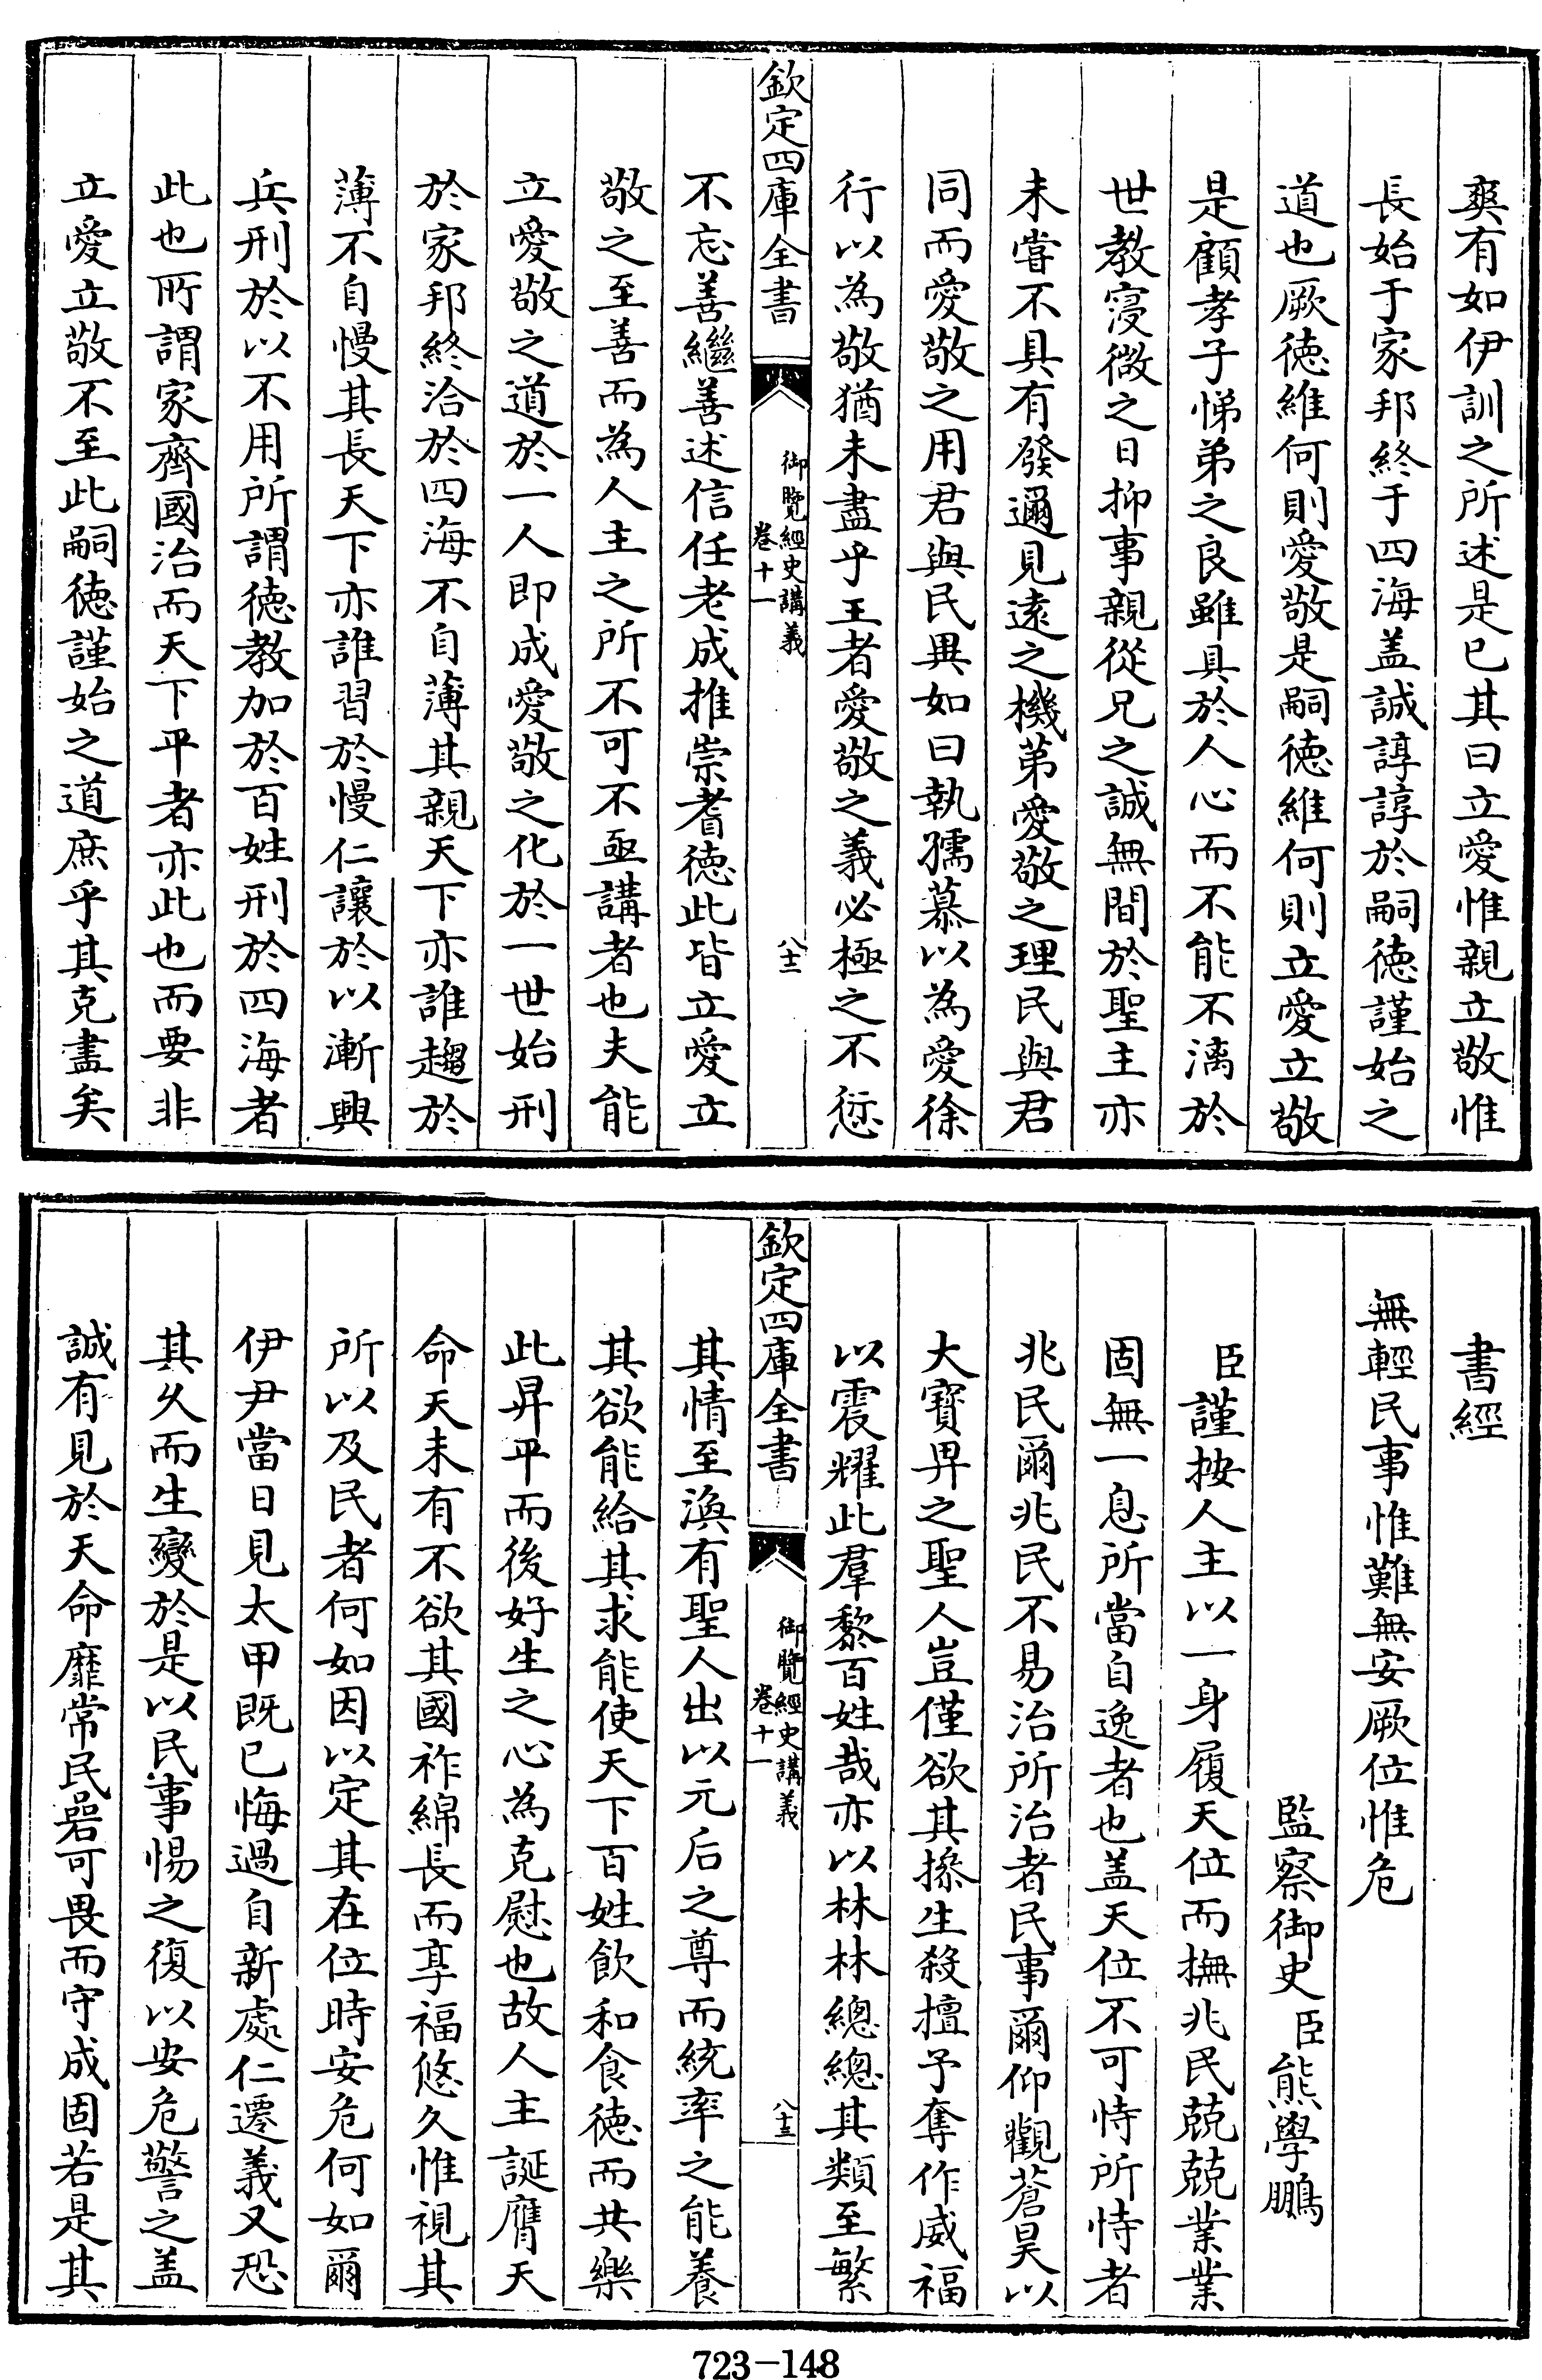 爽有如伊訓之所述是已其曰立愛惟親立敬惟
長始于家邦終于四海盖誠諄諄於嗣徳謹始之
道也厥徳維何則愛敬是嗣徳維何則立愛立敬
是顧孝子悌弟之良雖具於人心而不能不漓於
世教寖微之日抑事親從兄之誠無間於聖主亦
未嘗不具有發邇見遠之機第愛敬之理民與君
同而愛敬之用君與民異如曰執孺慕以為愛徐
行以為敬猶未盡乎王者愛敬之義必極之不愆
欽定四庫全書
御覽經史講義
卷十一
八十二
不忘善繼善述信任老成推崇耆徳此皆立愛立
敬之至善而為人主之所不可不亟講者也夫能
立愛敬之道於一人即成愛敬之化於一世始刑
於家邦終洽於四海不自薄其親天下亦誰趨於
薄不自慢其長天下亦誰習於慢仁讓於以漸興
兵刑於以不用所謂徳教加於百姓刑於四海者
此也所謂家齊國治而天下平者亦此也而要非
立愛立敬不至此嗣徳謹始之道庶乎其克盡矣
書經
無輕民事惟難無安厥位惟危
監察御史臣熊學鵬
臣謹按人主以一身履天位而撫兆民兢兢業業
固無一息所當自逸者也盖天位不可恃所恃者
兆民爾兆民不易治所治者民事爾仰觀蒼昊以
大寶畀之聖人豈僅欲其操生殺擅予奪作威福
以震耀此羣黎百姓哉亦以林林總總其類至繁
欽定四庫全書
御覽經史講義
卷十一
八十三
其情至渙有聖人出以元后之尊而統率之能養
其欲能給其求能使天下百姓飲和食徳而共樂
此昇平而後好生之心為克慰也故人主誕膺天
命天未有不欲其國祚綿長而享福悠久惟視其
所以及民者何如因以定其在位時安危何如爾
伊尹當日見太甲既已悔過自新處仁遷義又恐
其久而生變於是以民事惕之復以安危警之盖
誠有見於天命靡常民碞可畏而守成固若是其
723-148